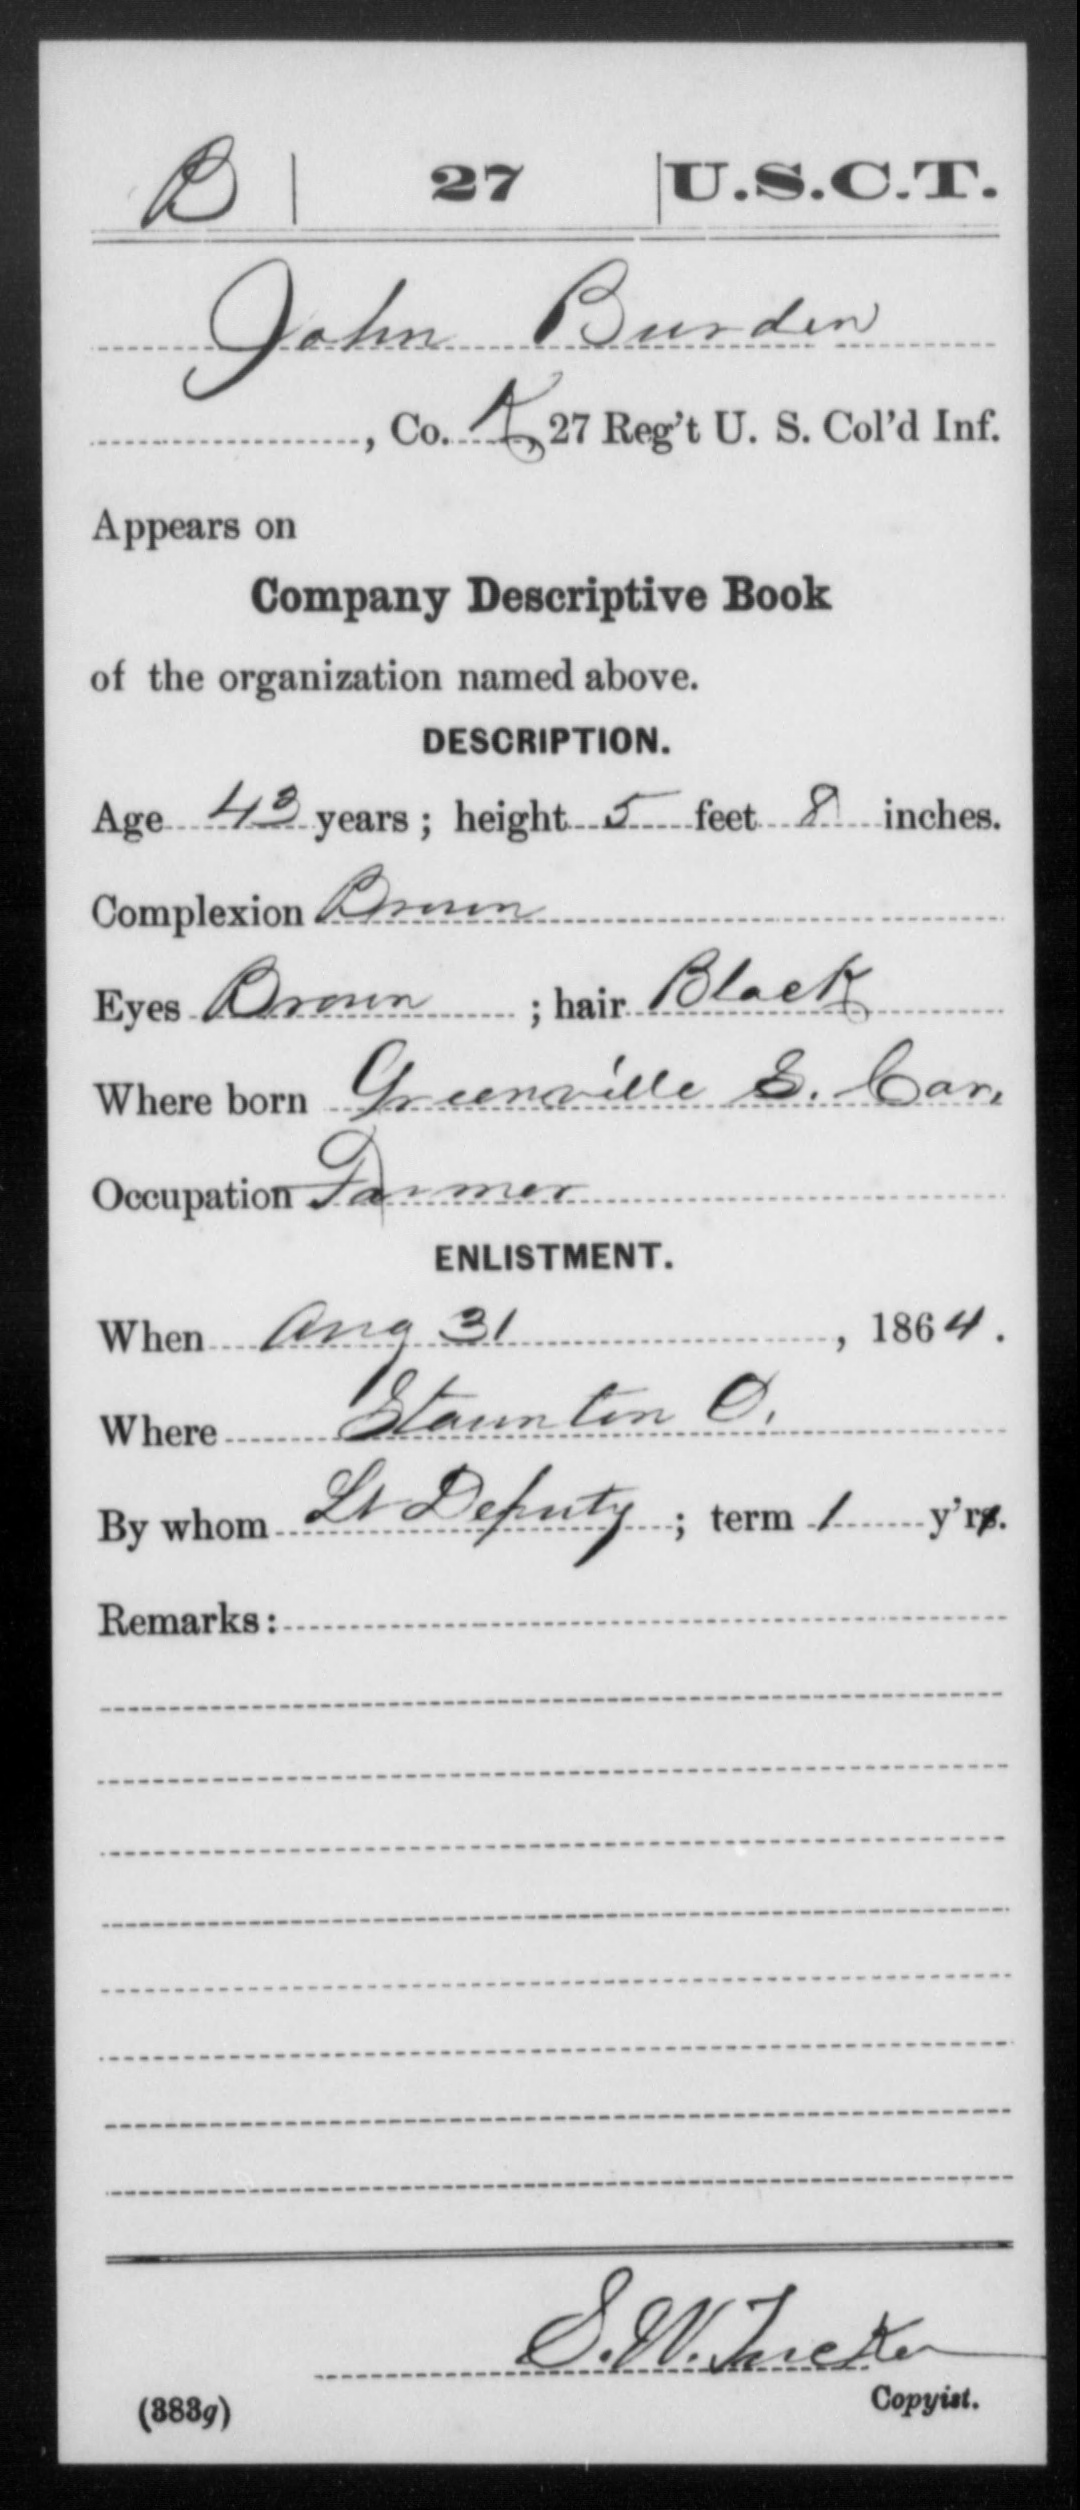 B | 27 | U.S.C.T.
John Burden
, Co. K, 27 Reg't U. S. Col'd Inf.
Appears on
Company Descriptive Book
of the organization named above.
DESCRIPTION.
Age 43 years; height 5 feet 8 inches.
Complexion Brown
Eyes Brown ; hair Black
Where born Greenville S. Car.
Occupation Farmer
ENLISTMENT.
When Aug 31, 1864.
Where Staunton O.
By whom Lt Deputy; term 1 y'rs.
Remarks:
S. W. Tucker
Copyist.
(383g)